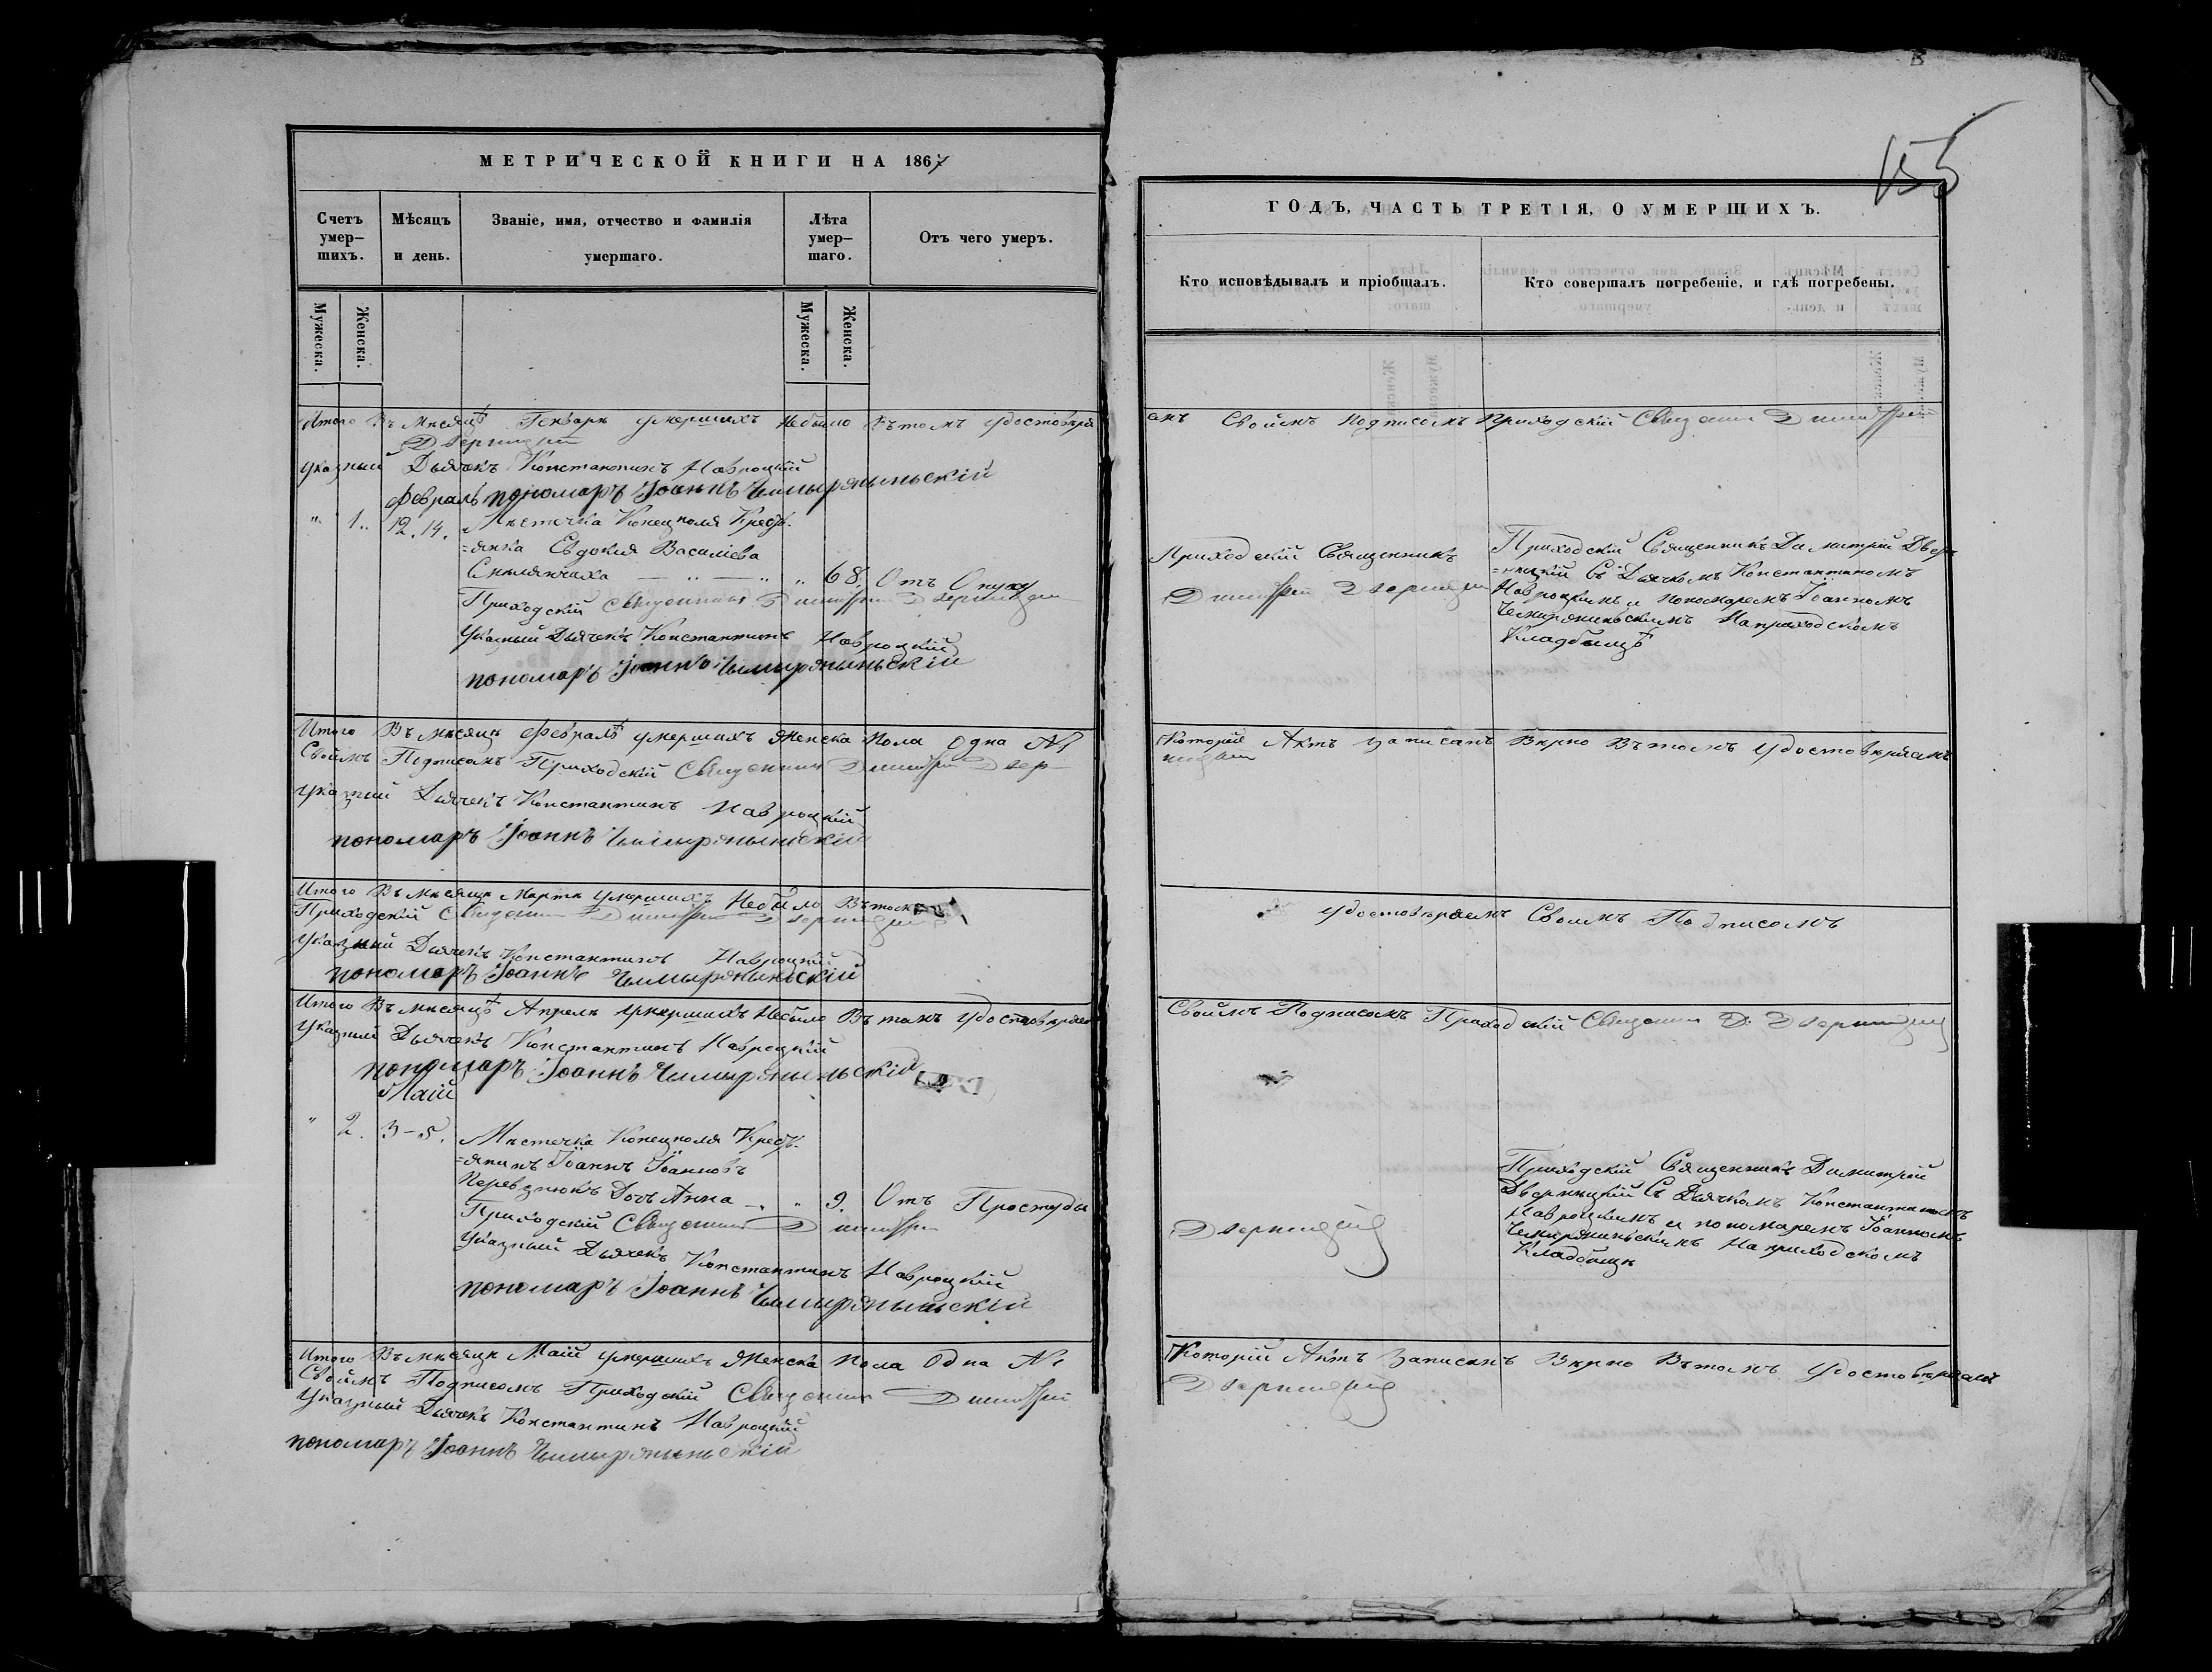 МЕТРИЧЕСКОЙ КНИГИ НА 1867
Счетъ умер-шихъ.
Мѣсяцъ и день.
Званіе, имя, отчество и фамилія умершаго.
Лѣта умер-шаго.
Отъ чего умеръ.
Мужеска.
Женска.
Мужеска.
Женска.
Итого Въ Мѣсяцѣ Генваря умершихъ Небыло Вътомъ удостовѣря
Дверницкій
указный Дьячекъ Константинъ Навроцкій
Февраль пономаръ Іоаннъ
" 1. 12. 14. Мѣстечка Конецполя Крестъ-
=янка Евдокия Василіева
" 68. Отъ Опуху
Приходскій Священникъ Димитрій Дверницкій
Указный Дьячекъ Константинъ Навроцкій
пономаръ Іоаннъ
Итого Въ Мѣсяцѣ Февралѣ умершихъ Женска Пола Одна №1
Своимъ Подписомъ Приходскій Священникъ Димитрій Двер-
указный Дьячекъ Константинъ Навроцкій
пономаръ Іоаннъ
Итого Въ Мѣсяцѣ Марта умершихъ Небыло Вътом
Приходскій Священникъ Димитрій Дверницкій
Указный Дьячекъ Константинъ Навроцкій
пономаръ Іоаннъ
Итого Въ Мѣсяцѣ Апреля умершихъ Небыло Вътомъ удостовѣряем
Указный Дьячекъ Константинъ Навроцкій
пономаръ Іоаннъ
Маій
" 2. 3-5. Мѣстечка Конецполя Крестъ-
=янинъ Іоаннъ Іоанновъ
Дочъ Анна " 9. Отъ Простуды
Приходскій Священникъ Димитрій
Указный Дьячекъ Константинъ Навроцкій
пономаръ Іоаннъ
Итого Въ Мѣсяцѣ Маій умершихъ Женска Пола Одна №1
Своимъ Подписомъ Приходскій Священникъ Димитрій
Указный Дьячекъ Константинъ Навроцкій
пономаръ Іоаннъ
155
ГОДЪ, ЧАСТЬ ТРЕТІЯ, О УМЕРШИХЪ.
Кто исповѣдывалъ и пріобщалъ.
Кто совершалъ погребеніе, и гдѣ погребены.
емъ Своимъ Подписомъ Приходскій Священникъ Димитрій
Приходскій Священникъ
Димитрій Дверницкій
Приходскій Священникъ Димитрій Двер-
=ницкій Съ Дьячкомъ Константиномъ
Навроцкимъ и пономаремъ Іоанномъ
Наприходскомъ
Кладбищѣ
Которій Актъ записанъ Вѣрно Вътомъ удостовѣряемъ
ницкій
удостовѣряемъ Своимъ Подписомъ
Своимъ Подписомъ Приходскій Священникъ Д. Дверницкій
Дверницкій
Приходскій Священникъ Димитрій
Дверницкій Съ Дьячкомъ Константиномъ
Навроцкимъ и пономаремъ Іоанномъ
Наприходскомъ
Кладбищѣ
Которій Актъ Записанъ Вѣрно Вътомъ удостовѣряемъ
Дверницкій